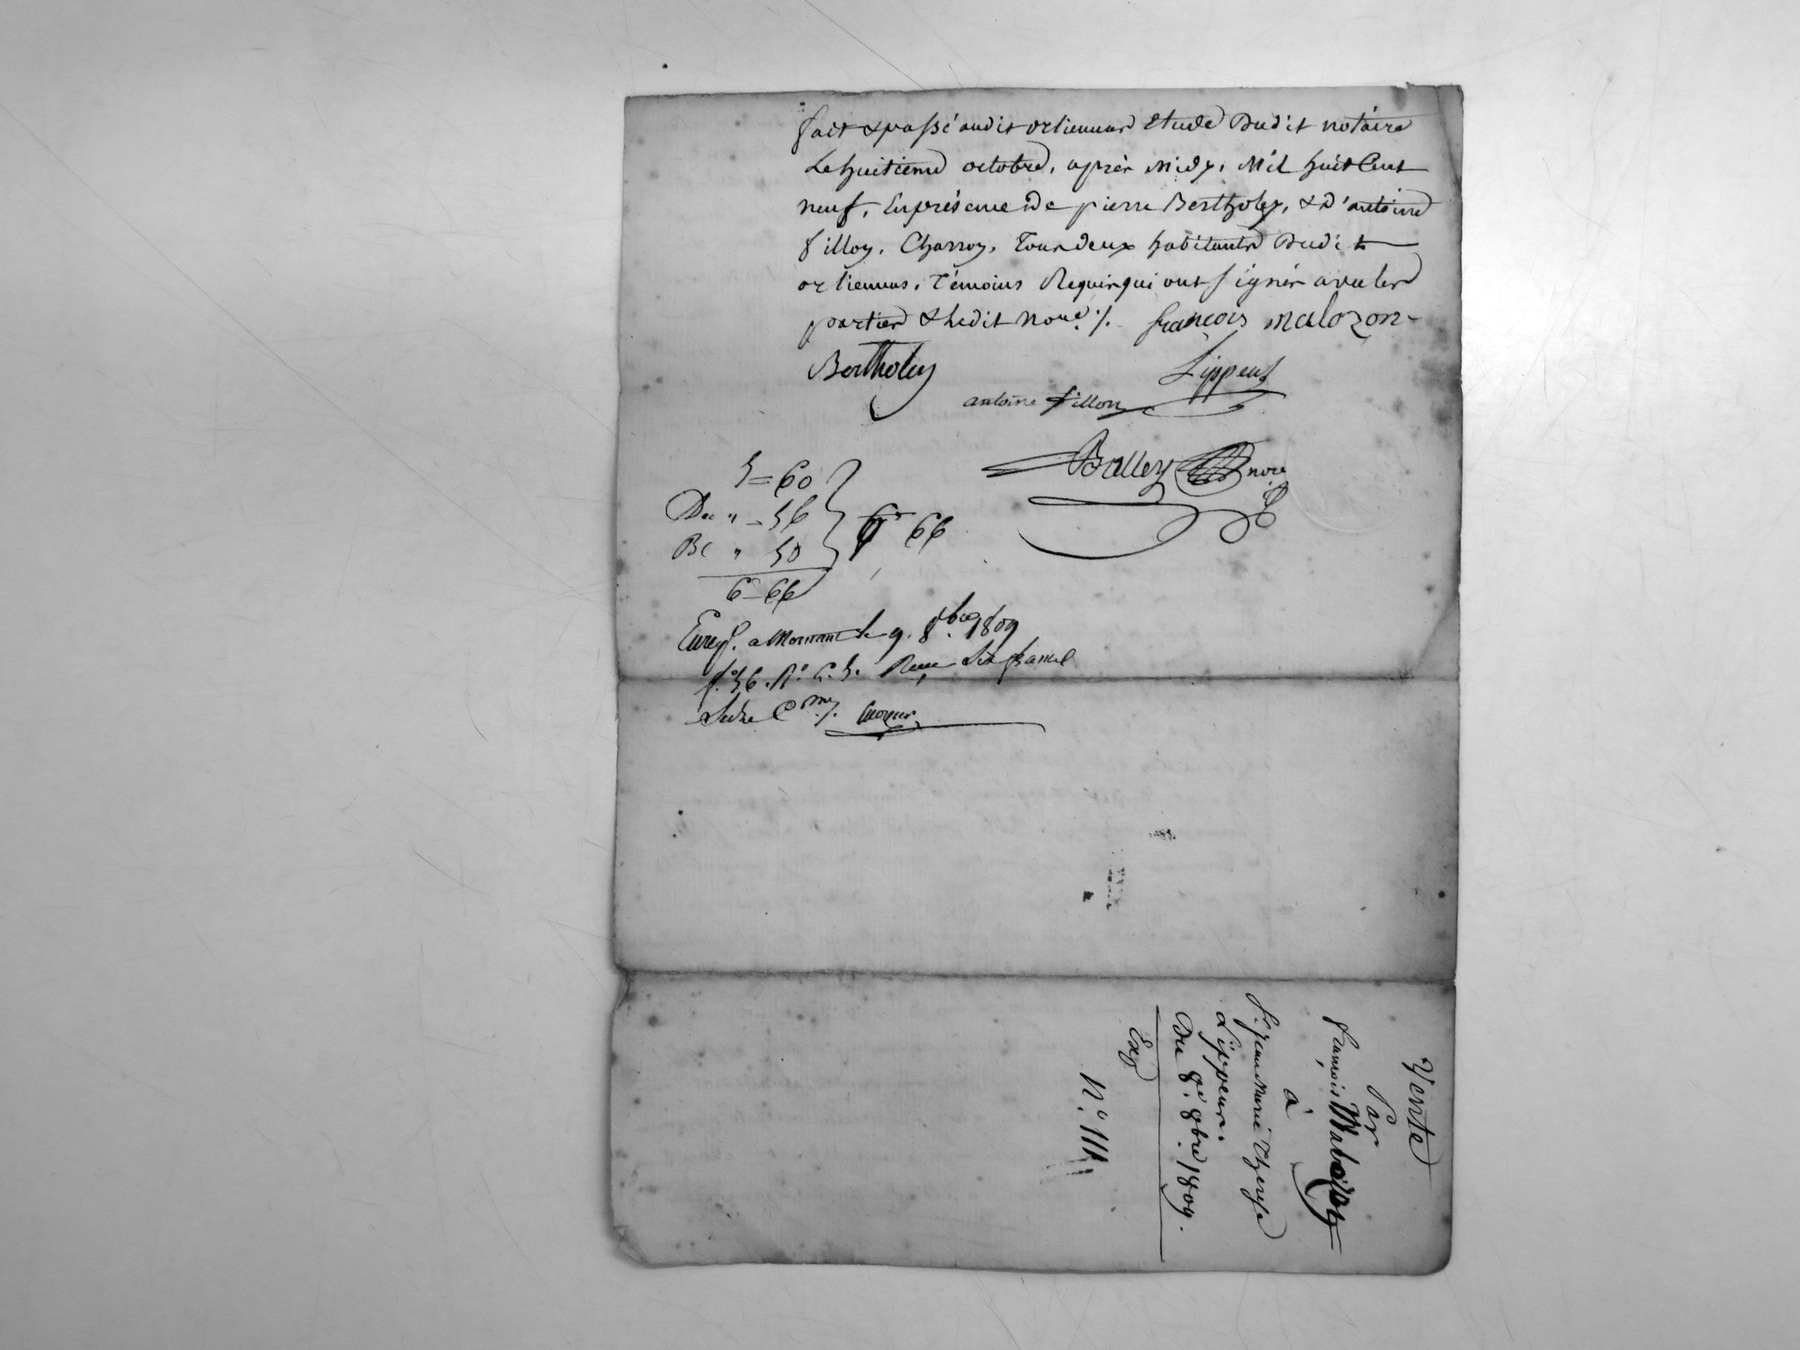 fait & passé audit orliennas Etude dudit notaire
Le huitieme octobre, après Midy, Mil huit Cent
neuf, En présence de pierre Bertholey, & d'antoine
filloy, Charron, Tous deux habitants dudit
orliennas, Témoins Requis qui ont signés avec les
parties & Ledit Nore ./. françois malozon
Bertholey Lippens
antoine fillon
Balley nore
5 = 60
Dec " - 56
Bc " 50
6 66
6 - 66
Enregt. a Mornant le 9. 8bre 1809
f° 56. R° C. 5. Reçu Six francs
Seize Cmes ./.
Vente
Par
françois
à
Sr. jean Marie Therese
Du 8e. 8bre 1809.
Exp
N° 111